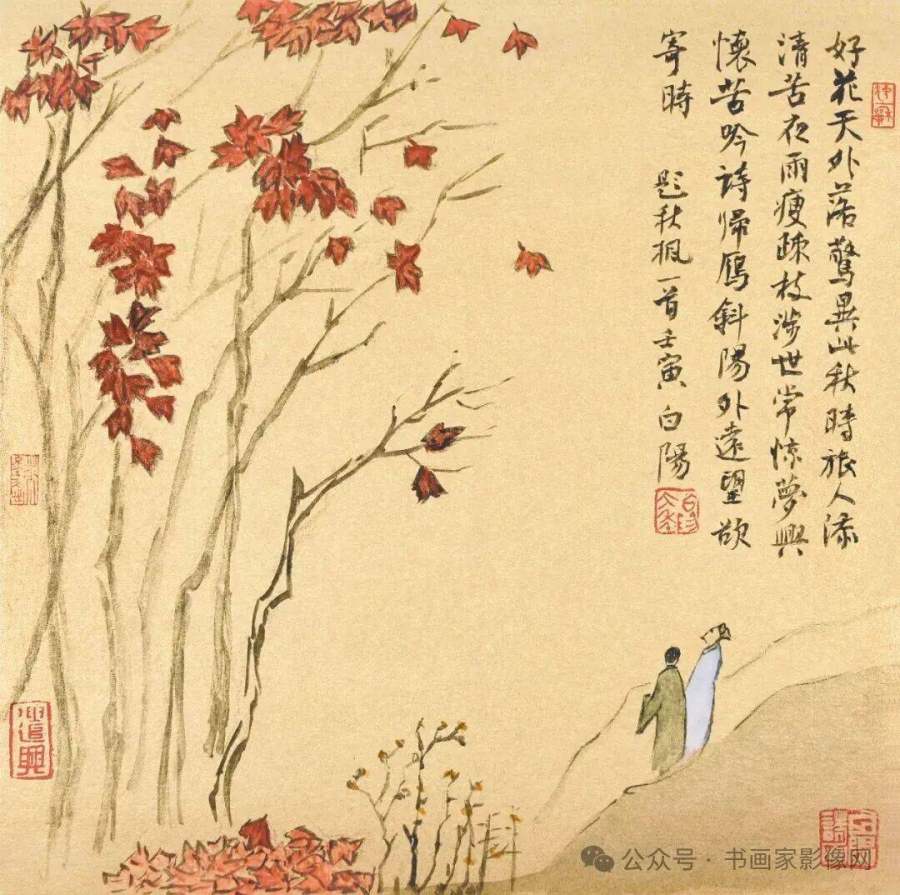 好花天外落驚異此秋時旅人添
清苦夜雨瘦疎枝涉世常惊夢興
懷苦吟詩歸鴈斜陽外遠望欲
寄時 題秋楓一首壬寅白陽
公众号 · 书画家影像网